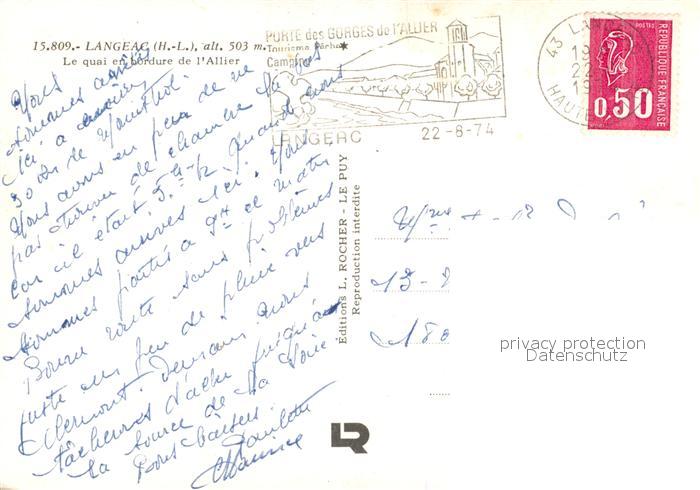 15.809.- LANGEAC (H.-L.), alt. 503 m.
Le quai en bordure de l'Allier
PORTE des GORGES de l'ALLIER
Tourisme Pêche
Camping
LANGEAC
22-8-74
43 LANGEAC
19
22-
19
HAUTE
POSTES
REPUBLIQUE FRANÇAISE
0,50
Nous
sommes arrivés
ici à
30 km de
Nous avons eu peur de ne
pas trouver de chambre là bas
car il était 5 h 1/2 quand nous
sommes arrivés ici. Nous
sommes partis à 9 H ce matin
Bonne route sans problèmes
juste un peu de pluie vers
Clermont. Demain nous
tacherons d'aller jusqu'à
la source de la Loire.
Bons baisers.
Paulette
Maurice
Editions L. ROCHER - LE PUY
Reproduction interdite
13
180
privacy protection
Datenschutz
LR